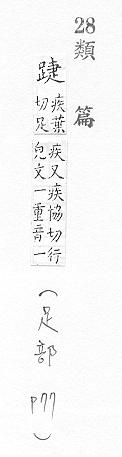 28 類篇
踕
疾葉
切足
疾又疾協切行
皃文一重音一
(足部 P77)